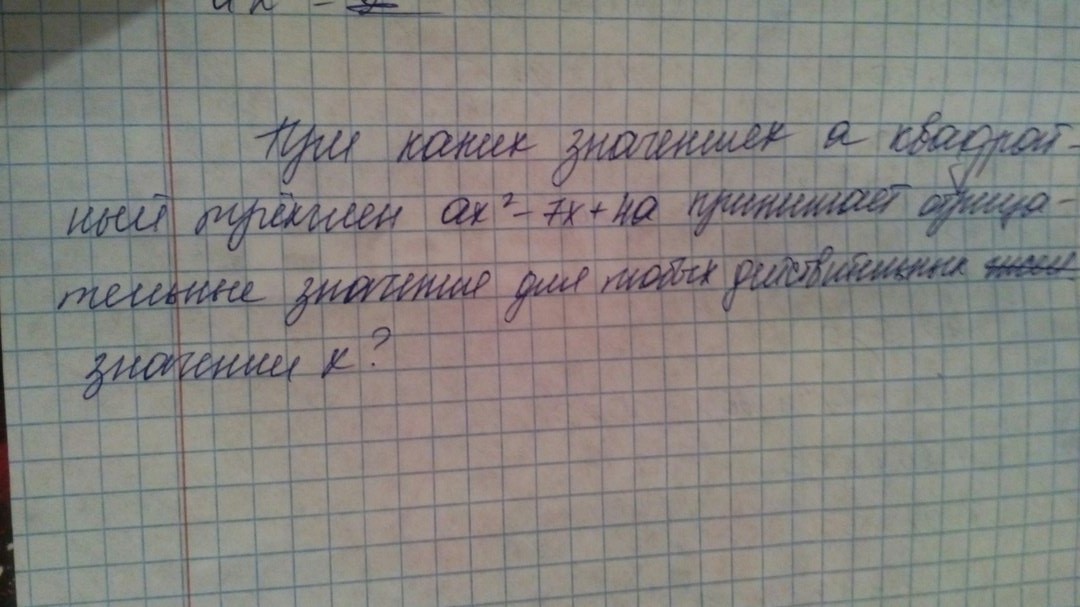 При каких значениях а квадрат-
ный трёхчлен ax² - 7x + 4a принимает отрица-
тельные значения для любых действительных
значений х?